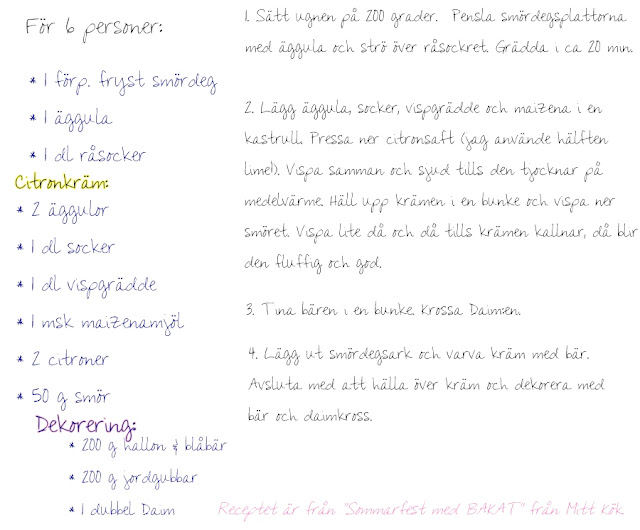 För 6 personer:
* 1 förp. fryst smördeg
* 1 äggula
* 1 dl råsocker
Citronkräm:
* 2 äggulor
* 1 dl socker
* 1 dl vispgrädde
* 1 msk maizenamjöl
* 2 citroner
* 50 g smör
Dekorering:
* 200 g hallon & blåbär
* 200 g jordgubbar
* 1 dubbel Daim
1. Sätt ugnen på 200 grader. Pensla smördegsplattorna
med äggula och strö över råsockret. Grädda i ca 20 min.
2. Lägg äggula, socker, vispgrädde och maizena i en
kastrull. Pressa ner citronsaft (jag använde hälften
lime!). Vispa samman och sjud tills den tjocknar på
medelvärme. Häll upp krämen i en bunke och vispa ner
smöret. Vispa lite då och då tills krämen kallnar, då blir
den fluffig och god.
3. Tina bären i en bunke. Krossa Daim:en.
4. Lägg ut smördegsark och varva kräm med bär.
Avsluta med att hälla över kräm och dekorera med
bär och daimkross.
Receptet är från "Sommarfest med BAKAT" från Mitt Kök